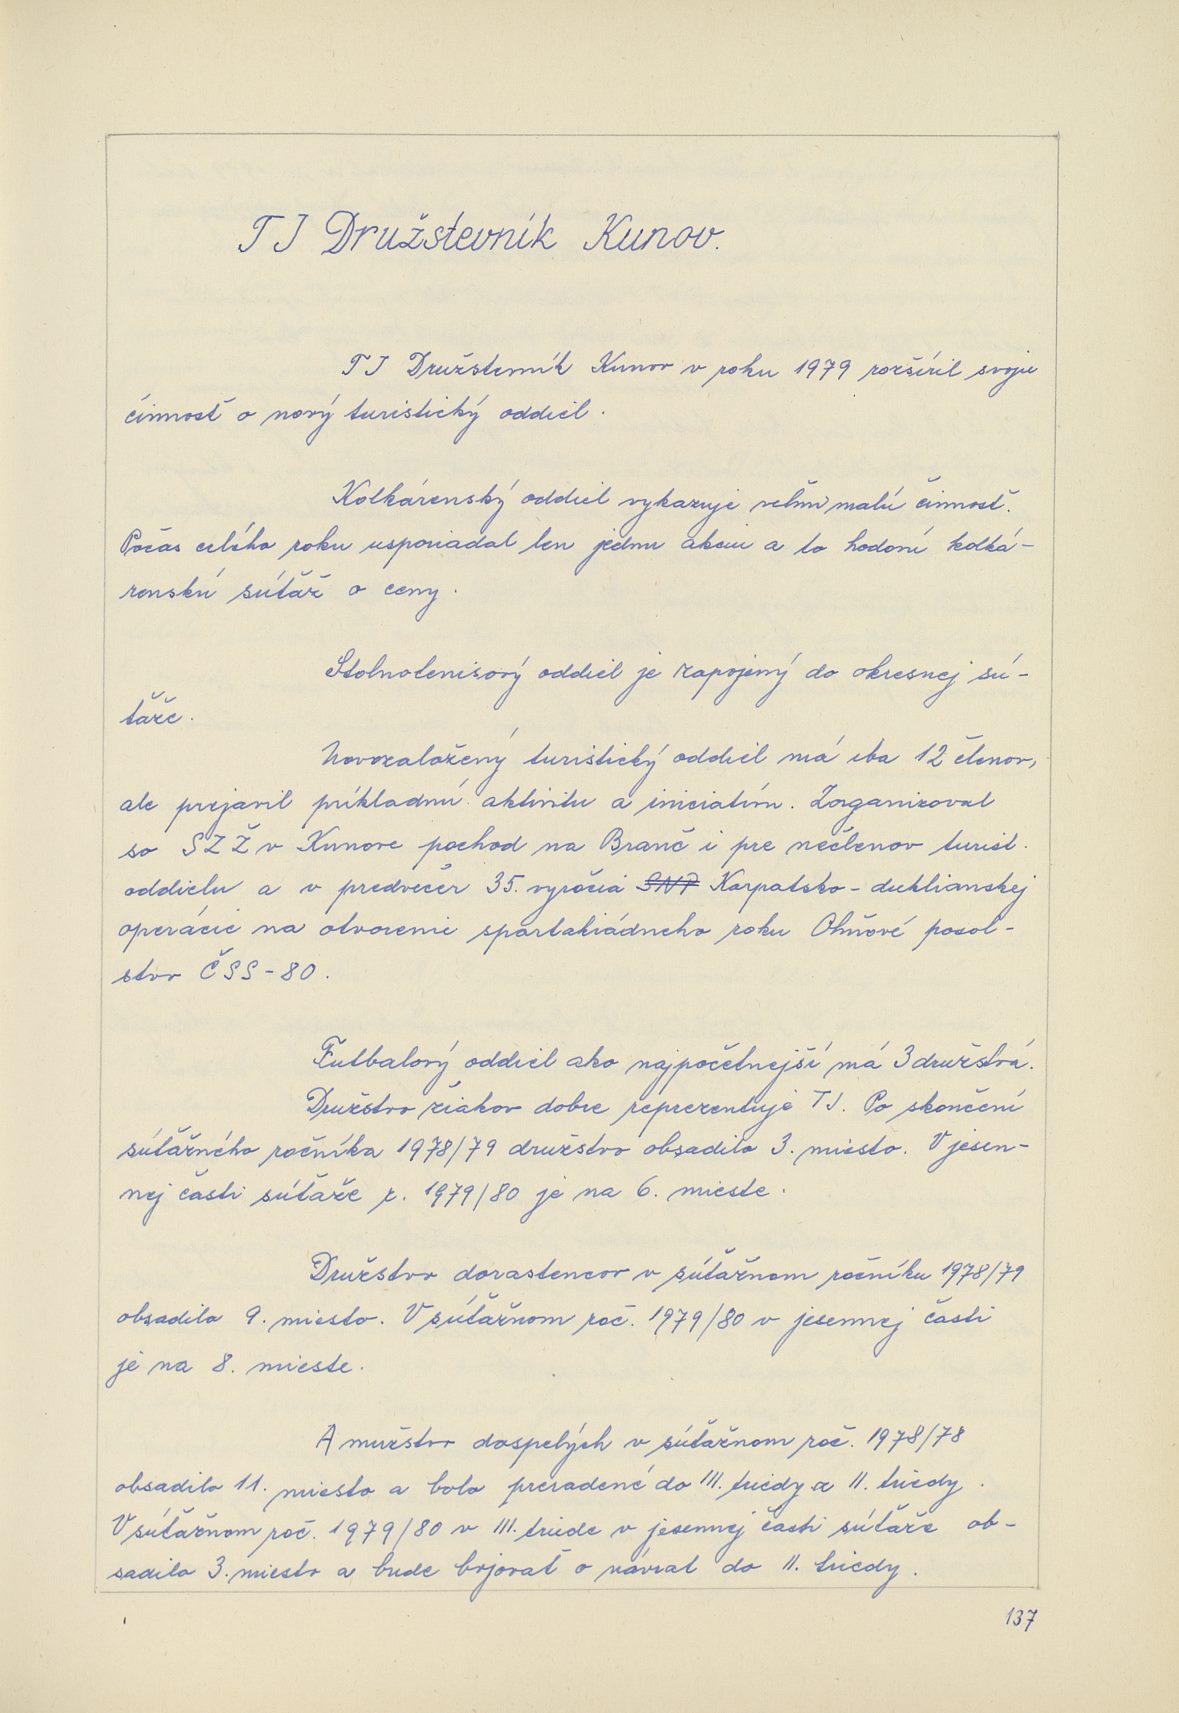 TJ Družstevník Kunov.
TJ Družstevník Kunov v roku 1979 rozšíril svoju
činnosť o nový turistický oddiel.
Kolkárenský oddiel vykazuje veľmi malú činnosť.
Počas celého roku usporiadal len jednu akciu a to hodovú kolká-
renskú súťaž o ceny.
Stolnotenisový oddiel je zapojený do okresnej sú-
ťaže.
Novozaložený turistický oddiel má iba 12 členov,
ale prejavil príkladnú aktivitu a iniciatívu. Zorganizoval
so SZŽ v Kunove pochod na Branč i pre nečlenov turist.
oddielu a v predvečer 35. výročia SNP Karpatsko-duklianskej
operácie na otvorenie spartakiádneho roku Ohňové posol-
stvo ČSS-80.
Futbalový oddiel ako najpočetnejší má 3 družstvá.
Družstvo žiakov dobre reprezentuje TJ. Po skončení
súťažného ročníka 1978/79 družstvo obsadilo 3. miesto. V jesen-
nej časti súťaže r. 1979/80 je na 6. mieste.
Družstvo dorastencov v súťažnom ročníku 1978/79
obsadilo 9. miesto. V súťažnom roč. 1979/80 v jesennej časti
je na 8. mieste.
A mužstvo dospelých v súťažnom roč. 1978/78
obsadilo 11. miesto a bolo preradené do III. triedy z II. triedy.
V súťažnom roč. 1979/80 v III. triede v jesennej časti súťaže ob-
sadilo 3. miesto a bude bojovať o návrat do II. triedy.
137